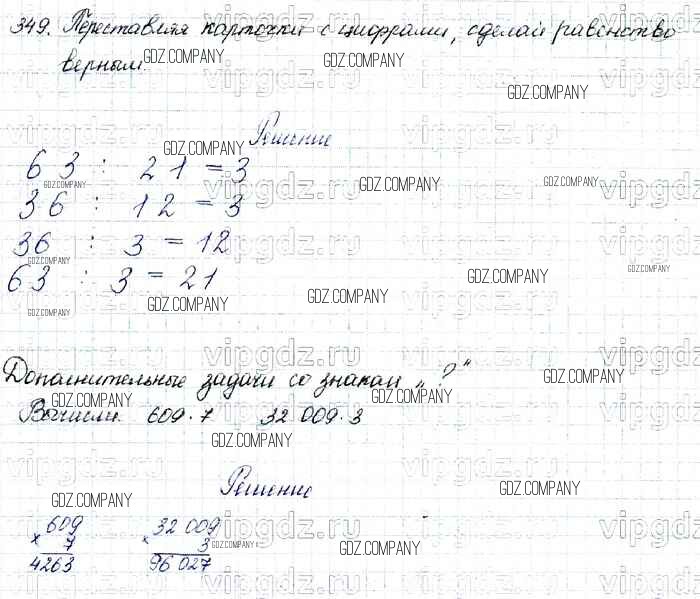 349. Переставляя карточки с цифрами, сделай равенство
верным.
Решение
63 : 21 = 3
36 : 12 = 3
36 : 3 = 12
63 : 3 = 21
Дополнительные задачи со знаком „?“
Вычисли. 609·7 32 009·3
Решение
×609 ×32 009
7 3
4263 96 027
GDZ.COMPANY
vipgdz.ru